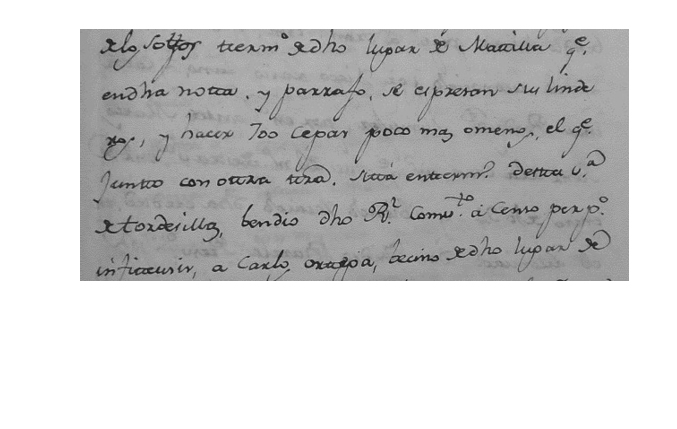 delos sottos term.º de dho lugar de Matilla q.e
en dha notta. y parrafo, se espresan sus linde
ros, y hacer 700 cepas poco mas o menos, el q.e
junto con ottra tierra. sitta en term.º destta v.a
de tordesillas, bendio dho R.l Comv.to a Censo perp.º
infiteusin, a Carlos ortega, becino de dho lugar de